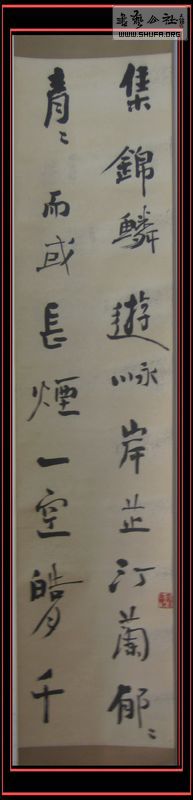 書藝公社
WWW.SHUFA.ORG
集錦鱗遊泳岸芷汀蘭郁〻
青〻而或長煙一空皓月千